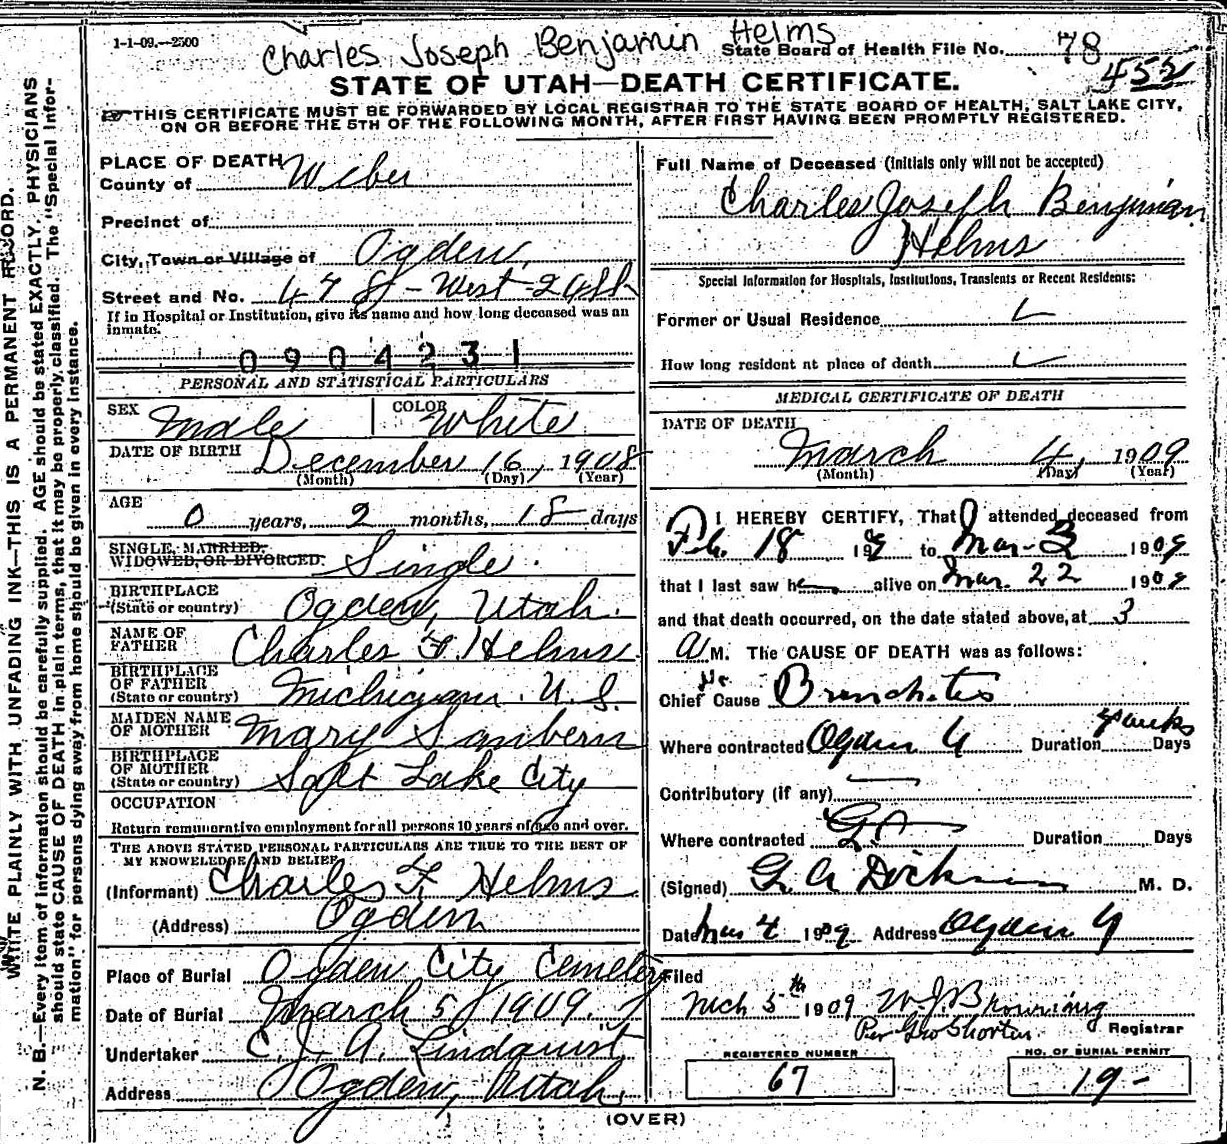 1-1-09.--2500
Charles Joseph Benjamin Helms
State Board of Health File No. 78
452
STATE OF UTAH—DEATH CERTIFICATE.
THIS CERTIFICATE MUST BE FORWARDED BY LOCAL REGISTRAR TO THE STATE BOARD OF HEALTH, SALT LAKE CITY,
ON OR BEFORE THE 5TH OF THE FOLLOWING MONTH, AFTER FIRST HAVING BEEN PROMPTLY REGISTERED.
WRITE PLAINLY WITH UNFADING INK—THIS IS A PERMANENT RECORD.
N. B.—Every item of information should be carefully supplied. AGE should be stated EXACTLY. PHYSICIANS
should state CAUSE OF DEATH in plain terms, that it may be properly classified. The "Special Infor-
mation" for persons dying away from home should be given in every instance.
PLACE OF DEATH
County of Weber
Precinct of
City, Town or Village of Ogden,
Street and No. 478 - West - 24th
If in Hospital or Institution, give its name and how long deceased was an
inmate.
0904231
PERSONAL AND STATISTICAL PARTICULARS
SEX Male COLOR White
DATE OF BIRTH December 16, 1908
(Month) (Day) (Year)
AGE
0 years, 2 months, 18 days
SINGLE, MARRIED,
WIDOWED, OR DIVORCED. Single.
BIRTHPLACE
(State or country) Ogden, Utah.
NAME OF
FATHER Charles F. Helms.
BIRTHPLACE
OF FATHER
(State or country) Michigan. U. S.
MAIDEN NAME
OF MOTHER Mary Sanbern
BIRTHPLACE
OF MOTHER
(State or country) Salt Lake City
OCCUPATION
Return remunerative employment for all persons 10 years of age and over.
THE ABOVE STATED PERSONAL PARTICULARS ARE TRUE TO THE BEST OF
MY KNOWELEDGE AND BELIEF
(Informant) Charles F. Helms
(Address) Ogden
Place of Burial Ogden City Cemetery
Date of Burial March 5, 1909.
Undertaker C. J. A. Lindquist,
Address Ogden, Utah.
Full Name of Deceased (initials only will not be accepted)
Charles Joseph Benjiman
Helms
Special Information for Hospitals, Institutions, Transients or Recent Residents:
Former or Usual Residence
How long resident at place of death
MEDICAL CERTIFICATE OF DEATH
DATE OF DEATH
March 4, 1909
(Month) (Day) (Year)
I HEREBY CERTIFY, That I attended deceased from
Feb. 18 1909 to Mar-3 1909
that I last saw h alive on Mar. 22 1909
and that death occurred, on the date stated above, at 3
A M. The CAUSE OF DEATH was as follows:
Chief Cause Bronchitis
Where contracted Ogden U Duration 4 weeks Days
Contributory (if any)
Where contracted Duration Days
(Signed) G. A. Dickson M. D.
Date Mar 4 1909 Address Ogden U
Filed
Mch 5th 1909 W J Browning
Per Geo Shorten Registrar
REGISTERED NUMBER
67
NO. OF BURIAL PERMIT
19-
(OVER)